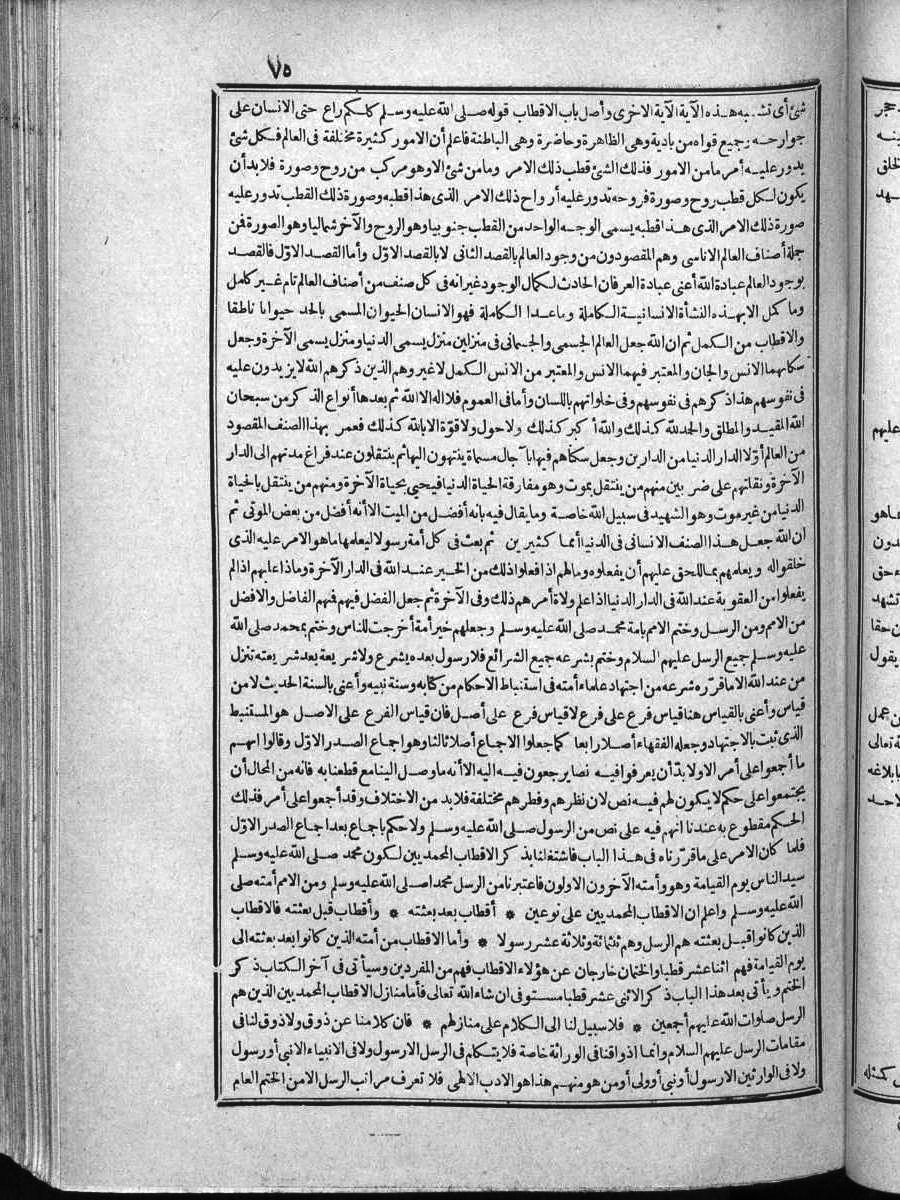 ٧٥
شئ أى تشبه هذه الآية الآية الاخرى وأصل باب الاقطاب قوله صلى الله عليه وسلم كلكم راع حتى الانسان على
جوارحه وجميع قواه من بادية وهى الظاهرة وحاضرة وهى الباطنة فاعلم أن الامور كثيرة مختلفة فى العالم فكل شئ
يدور عليه أمر ما من الامور فذلك الشئ قطب ذلك الامر وما من شئ الا وهو مركب من روح وصورة فلا بد أن
يكون لكل قطب روح وصورة فروحه تدور عليه أرواح ذلك الامر الذى هذا قطبه وصورة ذلك القطب تدور عليه
صورة ذلك الامر الذى هذا قطبه يسمى الوجه الواحد من القطب جنوبيا وهو الروح والآخر شماليا وهو الصورة فمن
جملة أصناف العالم الاناسى وهم المقصودون من وجود العالم بالقصد الثانى لا بالقصد الاوّل وأما القصد الاوّل فالقصد
بوجود العالم عبادة الله أعنى عبادة العرفان الحادث لكمال الوجود غير انه فى كل صنف من أصناف العالم تام غير كامل
وما كمل الا بهذه النشأة الانسانية الكاملة وما عدا الكاملة فهو الانسان الحيوان المسمى بالحد حيوانا ناطقا
والاقطاب من الكمل ثم ان الله جعل العالم الجسمى والجسمانى فى منزلين منزل يسمى الدنيا ومنزل يسمى الآخرة وجعل
سكانهما الانس والجان والمعتبر فيهما الانس والمعتبر من الانس الكمل لا غير وهم الذين ذكرهم الله لا يزيدون عليه
فى نفوسهم هذا ذكرهم فى نفوسهم وفى خلواتهم باللسان وأما فى العموم فلا اله الا الله ثم بعدها أنواع الذكر من سبحان
الله المقيد والمطلق والحمد لله كذلك والله أكبر كذلك ولا حول ولا قوّة الا بالله كذلك فعمر بهذا الصنف المقصود
من العالم أوّلا الدار الدنيا من الدارين وجعل سكناهم فيها بآجال مسماة ينتهون اليها ثم ينتقلون عند فراغ مدتهم الى الدار
الآخرة ونقلتهم على ضربين منهم من ينتقل بموت وهو مفارقة الحياة الدنيا فيحيى بحياة الآخرة ومنهم من ينتقل بالحياة
الدنيا من غير موت وهو الشهيد فى سبيل الله خاصة وما يقال فيه بانه أفضل من الميت الا أنه أفضل من بعض الموتى ثم
ان الله جعل هذا الصنف الانسانى فى الدنيا أمما كثيرين ثم بعث فى كل أمة رسولا ليعلمها ما هو الامر عليه الذى
خلقوا له ويعلمهم بما للحق عليهم أن يفعلوه وما لهم اذا فعلوا ذلك من الخير عند الله فى الدار الآخرة وماذا عليهم اذا لم
يفعلوا من العقوبة عند الله فى الدار الدنيا اذا علم ولاة أمرهم ذلك وفى الآخرة ثم جعل الفضل فيهم فنهم الفاضل والافضل
من الامم ومن الرسل وختم الامم بامة محمد صلى الله عليه وسلم وجعلهم خير أمة أخرجت للناس وختم بمحمد صلى الله
عليه وسلم جميع الرسل عليهم السلام وختم بشرعه جميع الشرائع فلا رسول بعده يشرع ولا شريعة بعد شريعته تنزل
من عند الله الا ما قرّره شرعه من اجتهاد علماء أمته فى استنباط الاحكام من كتابه وسنة نبيه وأعنى بالسنة الحديث لا من
قياس وأعنى بالقياس هنا قياس فرع على فرع لا قياس فرع على أصل فان قياس الفرع على الاصل هو المستنبط
الذى ثبت بالاجتهاد وجعله الفقهاء أصلا رابعا كما جعلوا الاجماع أصلا ثالثا وهو اجماع الصدر الاوّل وقالوا انهم
ما أجمعوا على أمر الا ولا بدّ أن يعرفوا فيه نصا يرجعون فيه اليه الا أنه ما وصل الينا مع قطعنا به فانه من المحال أن
يجتمعوا على حكم لا يكون لهم فيه نص لان نظرهم وفطرهم مختلفة فلا بد من الاختلاف وقد أجمعوا على أمر فذلك
الحكم مقطوع به عندنا انهم فيه على نص من الرسول صلى الله عليه وسلم ولا حكم باجماع بعد اجماع الصدر الاوّل
فلما كان الامر على ما قرّرناه فى هذا الباب فاشتغلنا بذكر الاقطاب المحمديين لكون محمد صلى الله عليه وسلم
سيد الناس يوم القيامة وهو وأمته الآخرون الاولون فاعتبرنا من الرسل محمدا صلى الله عليه وسلم ومن الامم أمته صلى
الله عليه وسلم واعلم ان الاقطاب المحمديين على نوعين * أقطاب بعد بعثته * وأقطاب قبل بعثته فالاقطاب
الذين كانوا قبل بعثته هم الرسل وهم ثلثمائة وثلاثة عشر رسولا * وأما الاقطاب من أمته الذين كانوا بعد بعثته الى
يوم القيامة فهم اثنا عشر قطبا والختمان خارجان عن هؤلاء الاقطاب فهم من المفردين وسيأتى فى آخر الكتاب ذكر
الختم ويأتى بعد هذا الباب ذكر الاثنى عشر قطبا مستوفى ان شاء الله تعالى فأما منازل الاقطاب المحمديين الذين هم
الرسل صلوات الله عليهم أجمعين * فلا سبيل لنا الى الكلام على منازلهم * فان كلامنا عن ذوق ولا ذوق لنا فى
مقامات الرسل عليهم السلام وانما اذواقنا فى الوراثة خاصة فلا يتكلم فى الرسل الا رسول ولا فى الانبياء الا نبى أو رسول
ولا فى الوارثين الا رسول أو نبى أو ولى أو من هو منهم هذا هو الادب الالهى فلا تعرف مراتب الرسل الا من الختم العام